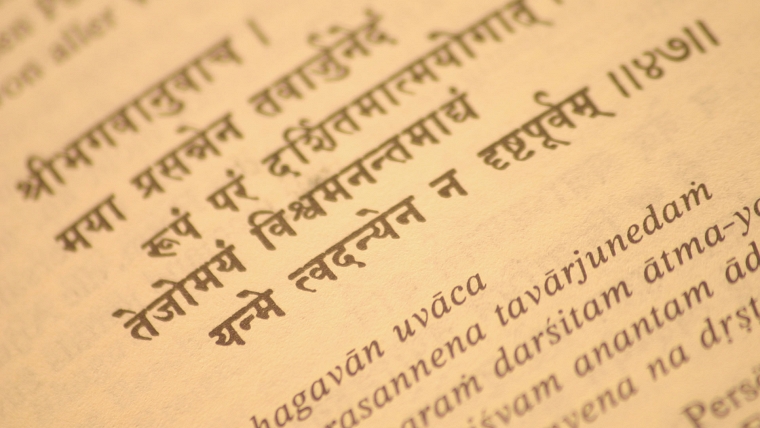 von aller
श्रीभगवानुवाच ।
मया प्रसन्नेन तवार्जुनेदं
रूपं परं दर्शितमात्मयोगात् ।
तेजोमयं विश्वमनन्तमाद्यं
यन्मे त्वदन्येन न दृष्टपूर्वम् ॥४७॥
hagavān uvāca
rasannena tavārjunedaṁ
araṁ darśitam ātma-yo
iśvam anantam ād
yena na dṛṣṭ
Pers